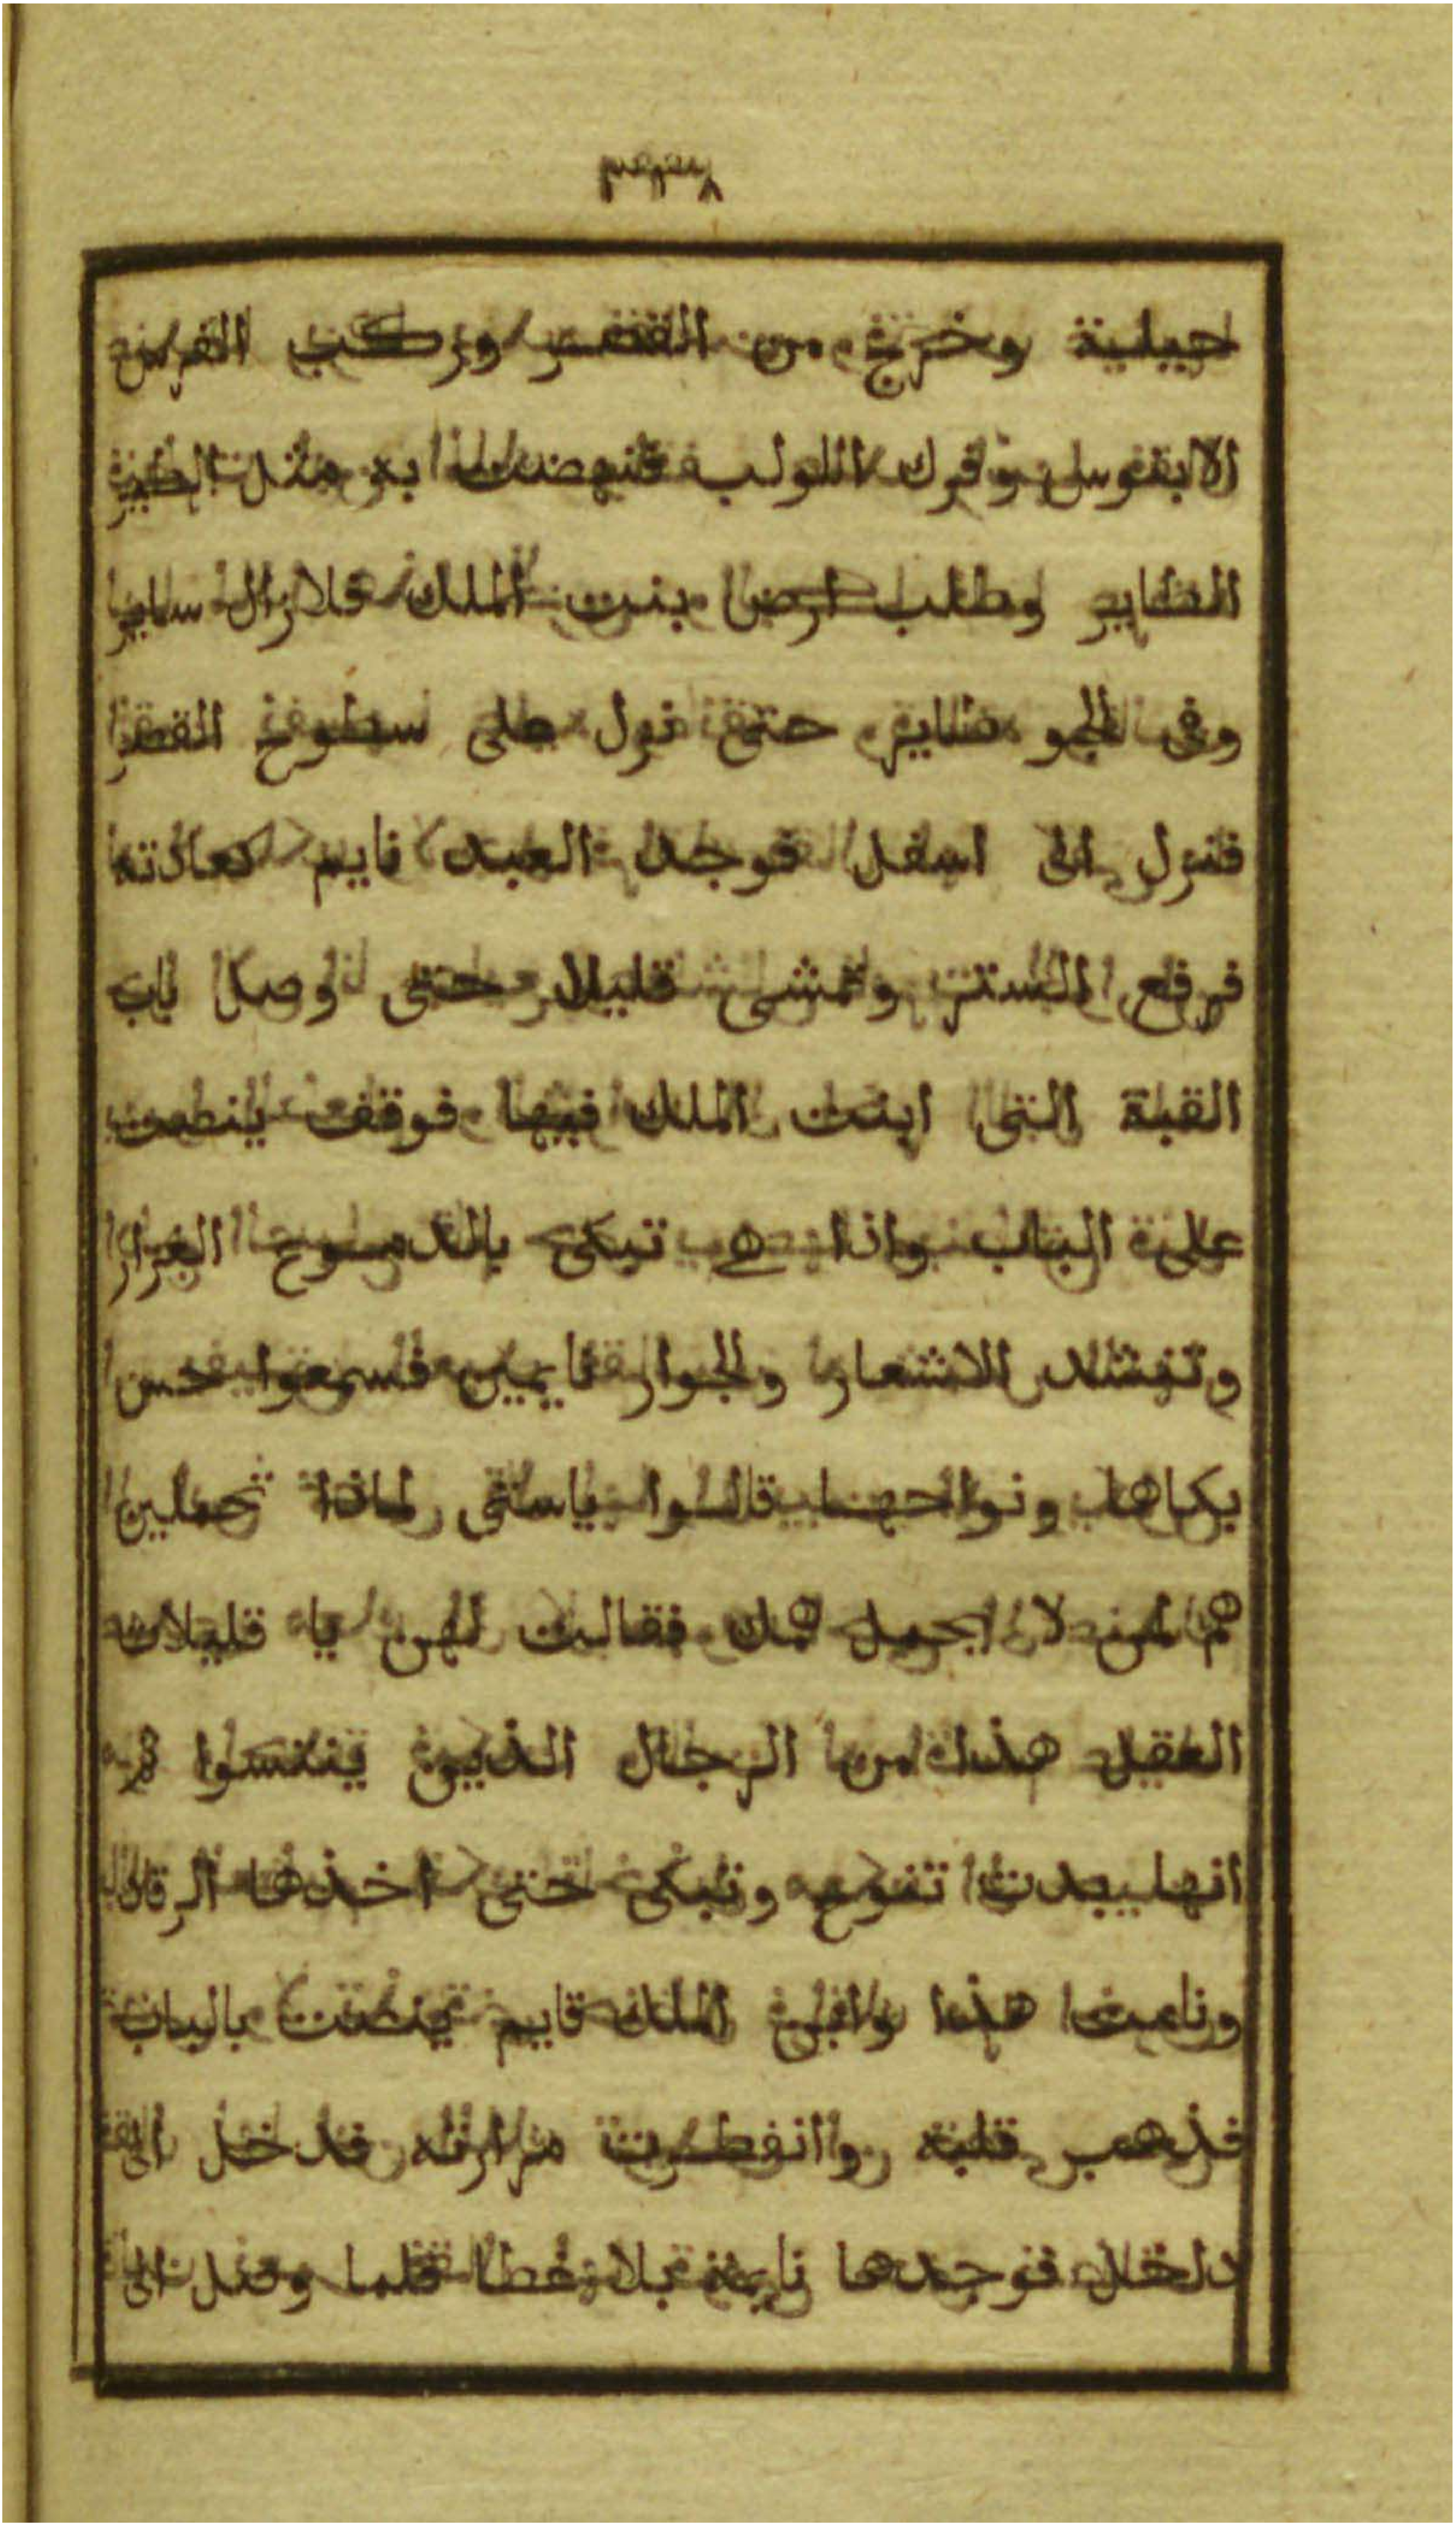 ٣٣٨
حيلية وخرج من القصر وركب الفرس
الابنوس وفرك اللولب فنهضت به مثل الطير
الطاير وطلب ارض بنت الملك فلا زال ساير
وفى الجو طاير حتى نزل على سطوح القصر
فنزل الى اسفل فوجد العبد نايم كعادته
فرفع الستر ومشى قليلا حتى وصل باب
القبة التى ابنت الملك فيها فوقف ينصت
على الباب واذا هي تبكى بالدموع الغزار
وتنشد الاشعار والجوار نايمين فسمعوا حس
بكاها ونواحها قالوا ياستى لماذا تحملين
هم لمن لا يحمل همك فقالت لهن يا قليلات
العقل هذا من الرجال الذين ينتسوا ثم
انها بدت تنوح وتبكى حتى اخذها الرقاد
ونامت هذا وابن الملك قايم ينصت بالباب
فذهب قلبه وانفطرت مرارته فدخل الى
داخل فوجدها نايمة بلا غطا فلما وصل الى